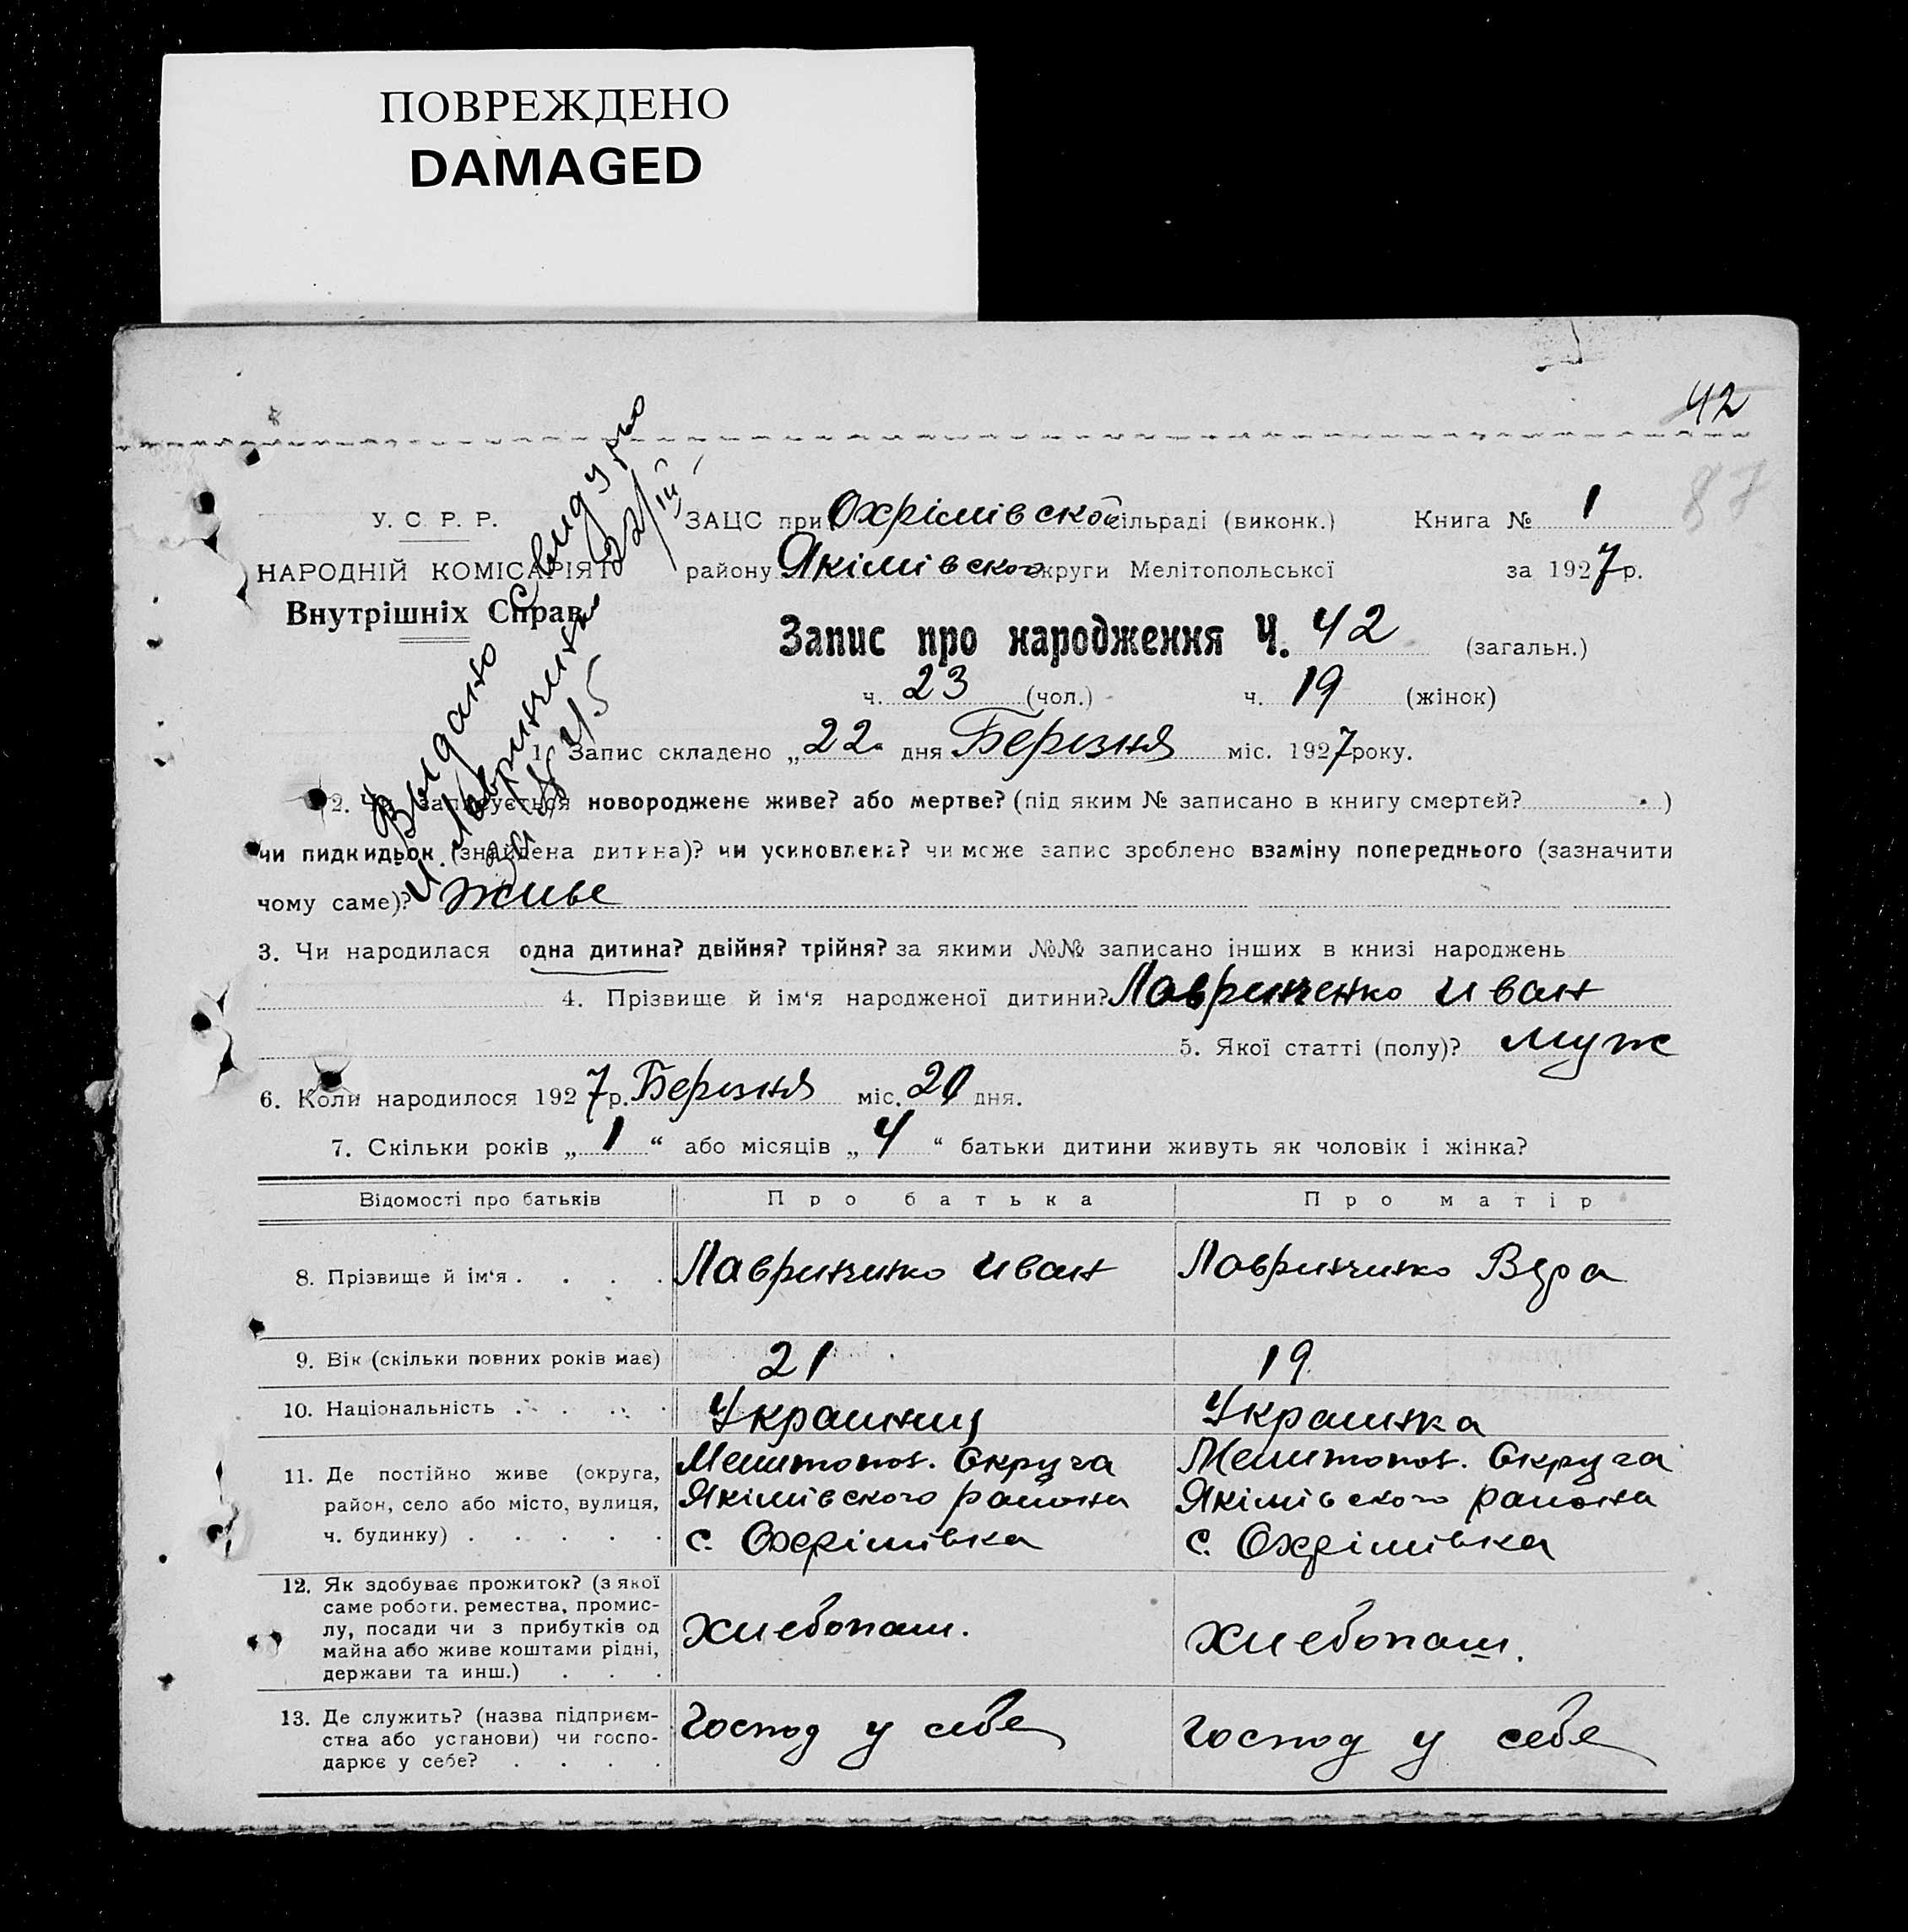 ПОВРЕЖДЕНО
DAMAGED
42
87
У. С. Р. Р.
НАРОДНІЙ КОМІСАРІЯТ
Внутрішніх Справ
Выдано свиду
22/III
Лавринченко
за № 45
ЗАЦС при Охрімівской сільраді (виконк.) Книга № 1
району Якімівского округи Мелітопольської за 1927 р.
Запис про народження Ч. 42 (загальн.)
ч. 23 (чол.) ч. 19 (жінок)
1. Запис складено „22" дня Березня міс. 1927 року.
2. Чи записується новороджене живе? або мертве? (під яким № записано в книгу смертей? )
чи пидкидьок (знайдена дитина)? чи усиновлена? чи може запис зроблено взаміну попереднього (зазначити
чому саме)? живе
3. Чи народилася одна дитина? двійня? трійня? за якими №№ записано інших в книзі народжень
4. Прізвище й ім‘я народженої дитини? Лавринченко Иван
5. Якої статті (полу)? муж
6. Коли народилося 1927 р. Березня міс. дня.
7. Скільки років „ 1 “ або місяців „ 4 “ батьки дитини живуть як чоловік і жінка?
Відомості про батьків Про батька Про матір
8. Прізвище й ім‘я . . . . Лавринченко Иван Лавринченко Вера
9. Вік (скільки повних років має) 21 19
10. Національність . . . . Украинец Украинка
11. Де постійно живе (округа, Мелитопол. Округа Мелитопол. Округа
район, село або місто, вулиця, Якімівского района Якімівского района
ч. будинку) . . . . . с. Охрімівка с. Охрімівка
12. Як здобуває прожиток? (з якої
саме роботи, ремества, промис-
лу, посади чи з прибутків од хлебопаш. хлебопаш.
майна або живе коштами рідні,
держави та инш.) . . .
13. Де служить? (назва підприєм- Господ у себе Господ у себе
ства або установи) чи госпо-
дарює у себе? . . . .